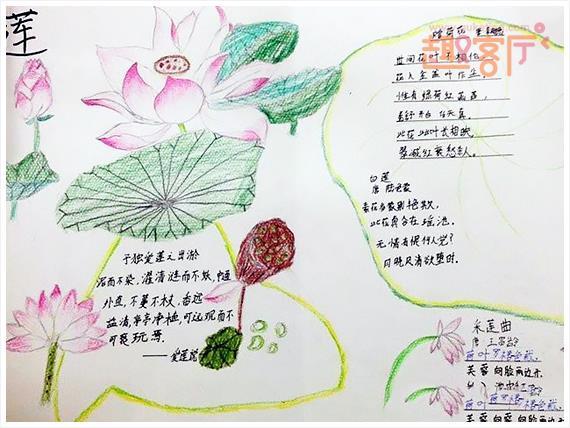 莲
趣客厅
赠荷花
世间花叶不相伦,
花入金盆叶作尘
惟有绿荷红菡萏,
卷舒开合任天真
此花此叶长相映,
翠减红衰愁杀人。
白莲
唐 陆龟蒙
素花多蒙别艳欺,
此花真合在瑶池。
无情有恨何人觉?
月晓风清欲堕时.
予独爱莲之出淤
泥而不染,濯清涟而不妖,中通
外直,不蔓不枝,香远
益清,亭亭净植,可远观而不
可亵玩焉.
——爱莲说
采莲曲
唐 王昌龄
荷叶罗裙
芙蓉向脸两边开
荷叶罗裙
芙蓉向脸两边开